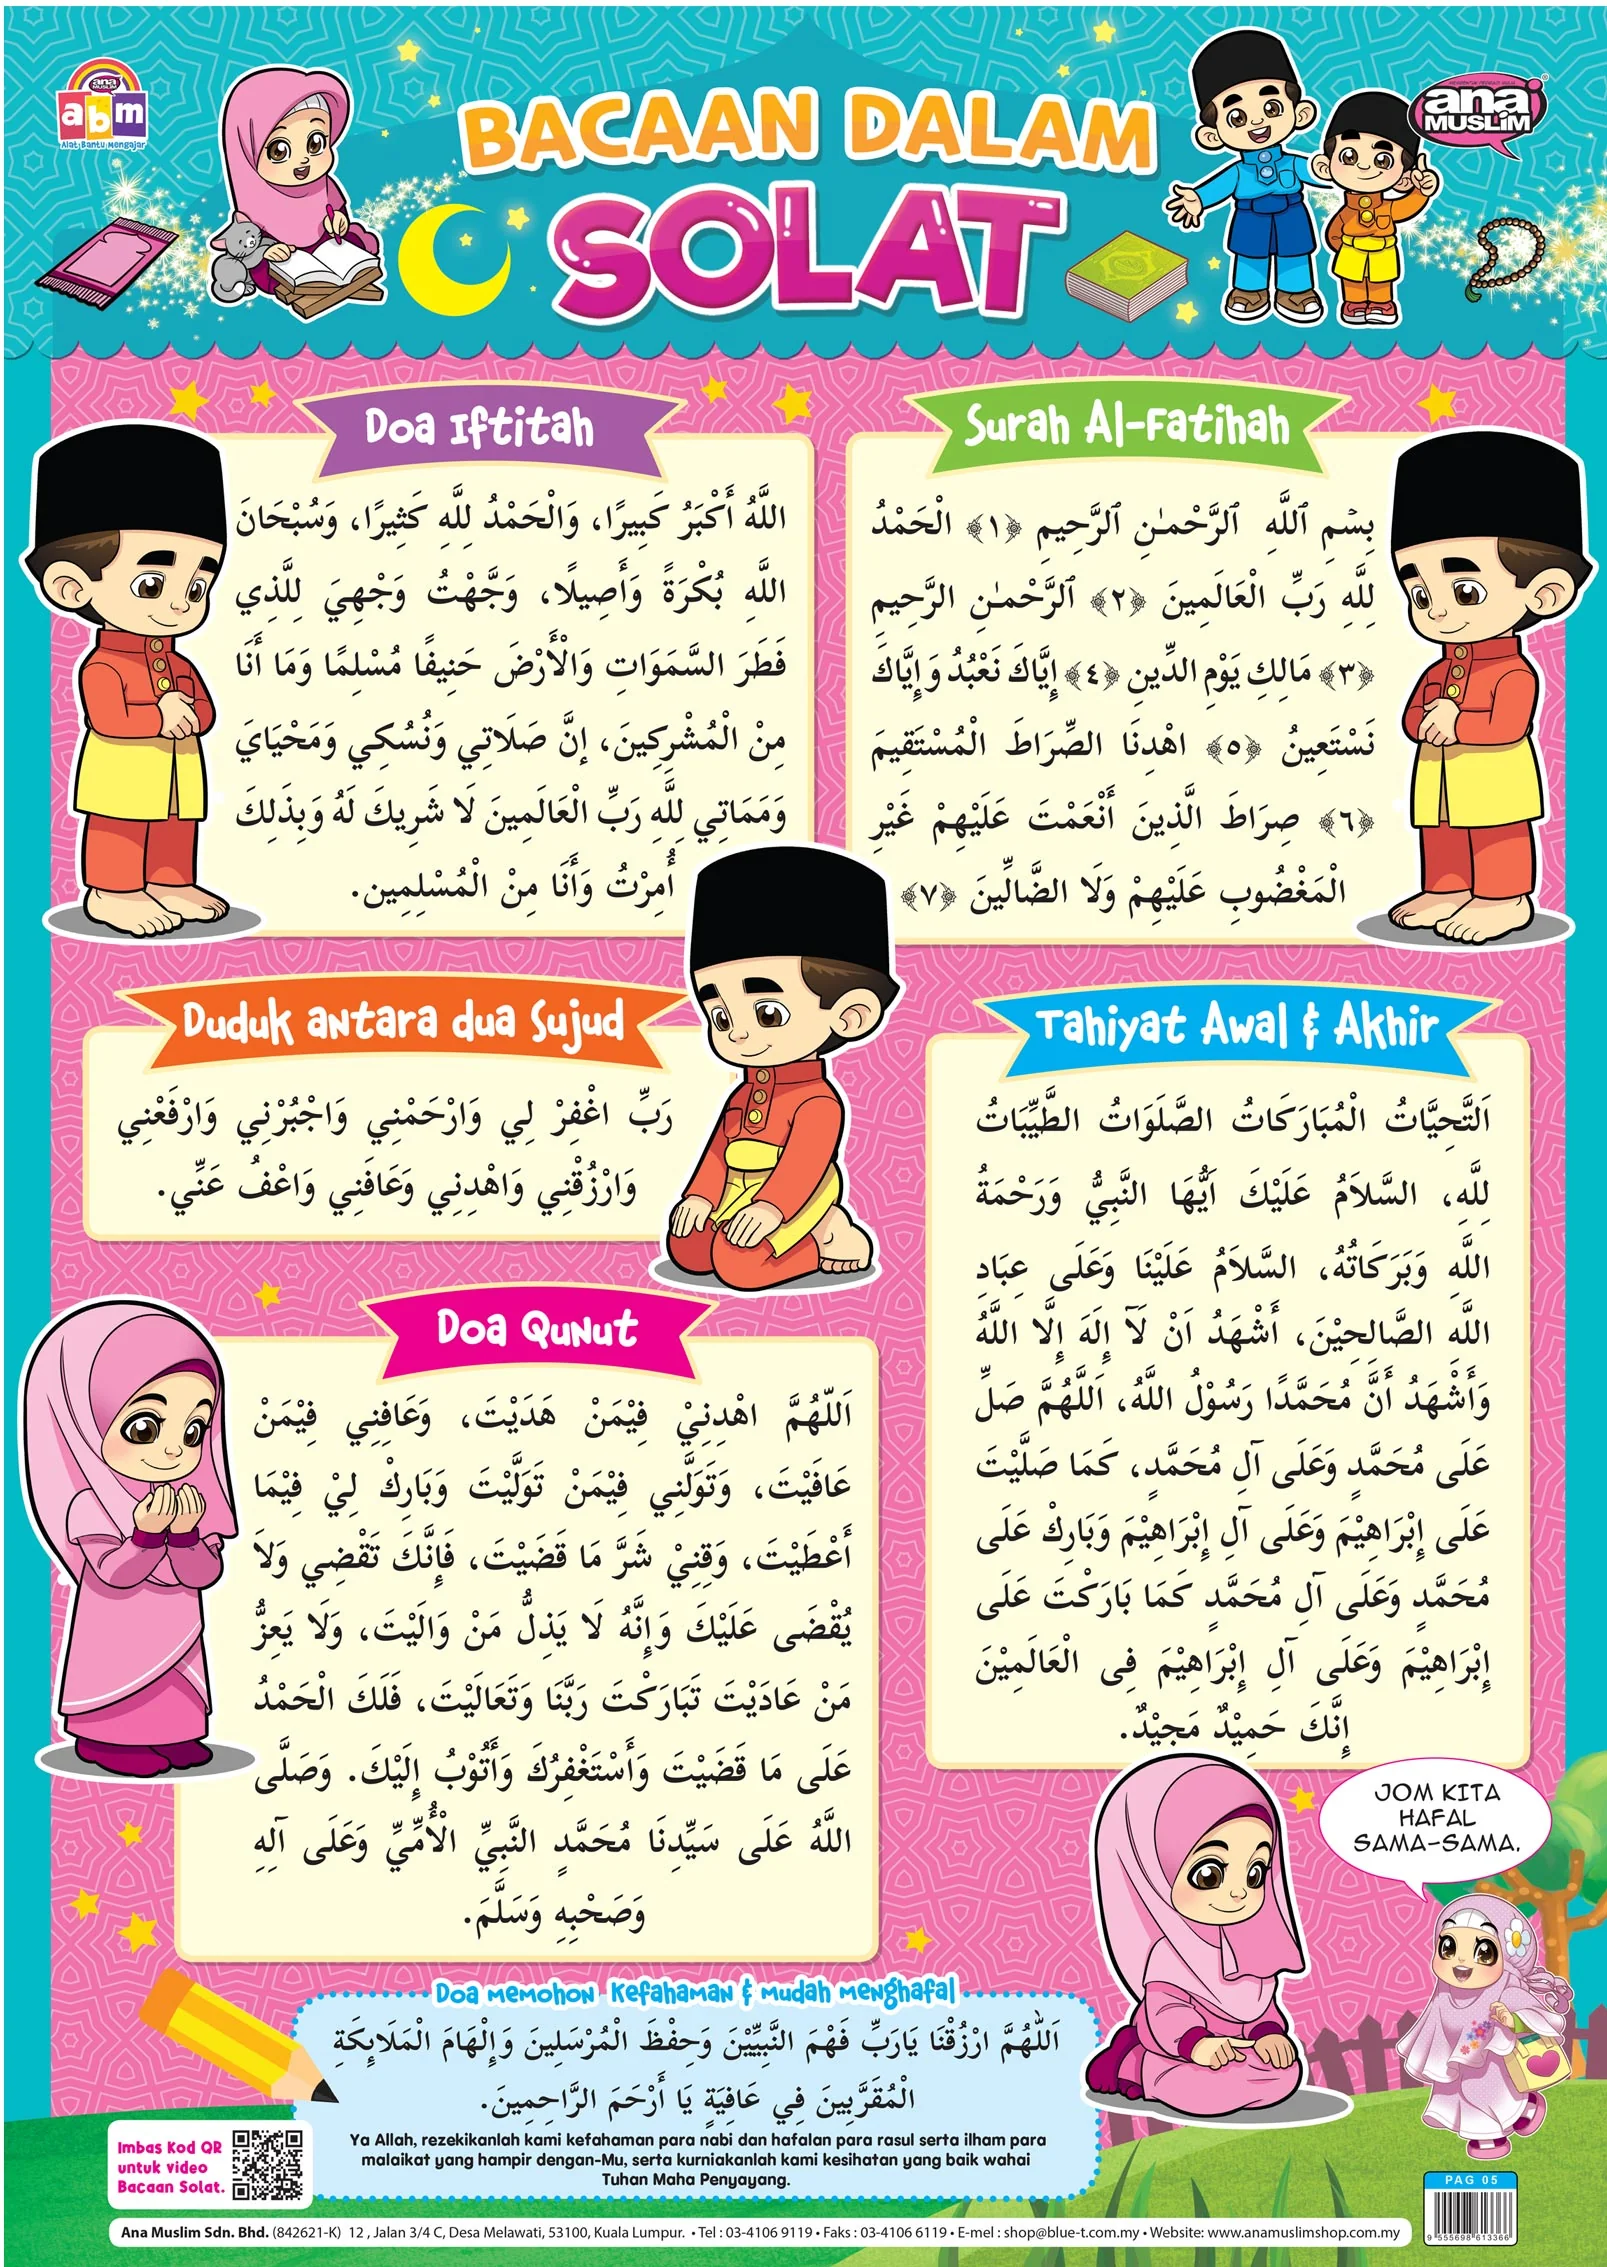 ana
MUSLIM
abm
Alat Bantu Mengajar
BACAAN DALAM
SOLAT
ana
MUSLIM
Doa Iftitah
اللَّهُ أَكْبَرُ كَبِيرًا، وَالْحَمْدُ لِلَّهِ كَثِيرًا، وَسُبْحَانَ
اللَّهِ بُكْرَةً وَأَصِيلًا، وَجَّهْتُ وَجْهِيَ لِلَّذِي
فَطَرَ السَّمَوَاتِ وَالْأَرْضَ حَنِيفًا مُسْلِمًا وَمَا أَنَا
مِنْ الْمُشْرِكِينَ، إِنَّ صَلَاتِي وَنُسُكِي وَمَحْيَايَ
وَمَمَاتِي لِلَّهِ رَبِّ الْعَالَمِينَ لَا شَرِيكَ لَهُ وَبِذَلِكَ
أُمِرْتُ وَأَنَا مِنْ الْمُسْلِمِين.
Surah Al-Fatihah
بِسْمِ ٱللَّهِ ٱلرَّحْمَـٰنِ ٱلرَّحِيمِ ﴿١﴾ الْحَمْدُ
لِلَّهِ رَبِّ الْعَالَمِينَ ﴿٢﴾ ٱلرَّحْمَـٰنِ الرَّحِيمِ
﴿٣﴾ مَالِكِ يَوْمِ الدِّينِ ﴿٤﴾ إِيَّاكَ نَعْبُدُ وَإِيَّاكَ
نَسْتَعِينُ ﴿٥﴾ اهْدِنَا الصِّرَاطَ الْمُسْتَقِيمَ
﴿٦﴾ صِرَاطَ الَّذِينَ أَنْعَمْتَ عَلَيْهِمْ غَيْرِ
الْمَغْضُوبِ عَلَيْهِمْ وَلَا الضَّالِّينَ ﴿٧﴾
Duduk antara dua Sujud
رَبِّ اغْفِرْ لِي وَارْحَمْنِي وَاجْبُرْنِي وَارْفَعْنِي
وَارْزُقْنِي وَاهْدِنِي وَعَافَنِي وَاعْفُ عَنِّي.
Tahiyat Awal & Akhir
اَلتَّحِيَّاتُ الْمُبَارَكَاتُ الصَّلَوَاتُ الطَّيِّبَاتُ
لِلَّهِ، السَّلاَمُ عَلَيْكَ اَيُّهَا النَّبِيُّ وَرَحْمَةُ
اللَّهِ وَبَرَكَاتُهُ، السَّلاَمُ عَلَيْنَا وَعَلَى عِبَادِ
اللَّهِ الصَّالِحِيْنَ، أَشْهَدُ اَنْ لَآ إِلَهَ إِلَّا اللَّهُ
وَأَشْهَدُ أَنَّ مُحَمَّدًا رَسُوْلُ اللَّهُ، اَللَّهُمَّ صَلِّ
عَلَى مُحَمَّدٍ وَعَلَى آلِ مُحَمَّدٍ، كَمَا صَلَّيْتَ
عَلَى إِبْرَاهِيْمَ وَعَلَى آلِ إِبْرَاهِيْمَ وَبَارِكْ عَلَى
مُحَمَّدٍ وَعَلَى آلِ مُحَمَّدٍ كَمَا بَارَكْتَ عَلَى
إِبْرَاهِيْمَ وَعَلَى آلِ إِبْرَاهِيْمَ فِى الْعَالَمِيْنَ
إِنَّكَ حَمِيْدٌ مَجِيْدٌ.
Doa Qunut
اَللّهُمَّ اهْدِنِيْ فِيْمَنْ هَدَيْتَ، وَعَافِنِي فِيْمَنْ
عَافَيْتَ، وَتَوَلَّنِي فِيْمَنْ تَوَلَّيْتَ وَبَارِكْ لِيْ فِيْمَا
أَعْطَيْتَ، وَقِنِيْ شَرَّ مَا قَضَيْتَ، فَإِنَّكَ تَقْضِي وَلاَ
يُقْضَى عَلَيْكَ وَإِنَّهُ لَا يَذِلُّ مَنْ وَالَيْتَ، وَلَا يَعِزُّ
مَنْ عَادَيْتَ تَبَارَكْتَ رَبَّنَا وَتَعَالَيْتَ، فَلَكَ الْحَمْدُ
عَلَى مَا قَضَيْتَ وَأَسْتَغْفِرُكَ وَأَتُوْبُ إِلَيْكَ. وَصَلَّى
اللَّهُ عَلَى سَيِّدِنَا مُحَمَّدٍ النَّبِيِّ الْأُمِّيِّ وَعَلَى آلِهِ
وَصَحْبِهِ وَسَلَّمَ.
JOM KITA
HAFAL
SAMA-SAMA.
Doa memohon Kefahaman & mudah menghafal
اَللّٰهُمَّ ارْزُقْنَا يَارَبِّ فَهْمَ النَّبِيِّيْنَ وَحِفْظَ الْمُرْسَلِينَ وَإِلْهَامَ الْمَلَايِكَةِ
الْمُقَرَّبِينَ فِي عَافِيَةٍ يَا أَرْحَمَ الرَّاحِمِينَ.
Ya Allah, rezekikanlah kami kefahaman para nabi dan hafalan para rasul serta ilham para
malaikat yang hampir dengan-Mu, serta kurniakanlah kami kesihatan yang baik wahai
Tuhan Maha Penyayang.
Imbas Kod QR
untuk video
Bacaan Solat.
PAG 05
9 555698 613366
Ana Muslim Sdn. Bhd. (842621-K) 12 , Jalan 3/4 C, Desa Melawati, 53100, Kuala Lumpur. • Tel : 03-4106 9119 • Faks : 03-4106 6119 • E-mel : shop@blue-t.com.my • Website: www.anamuslimshop.com.my